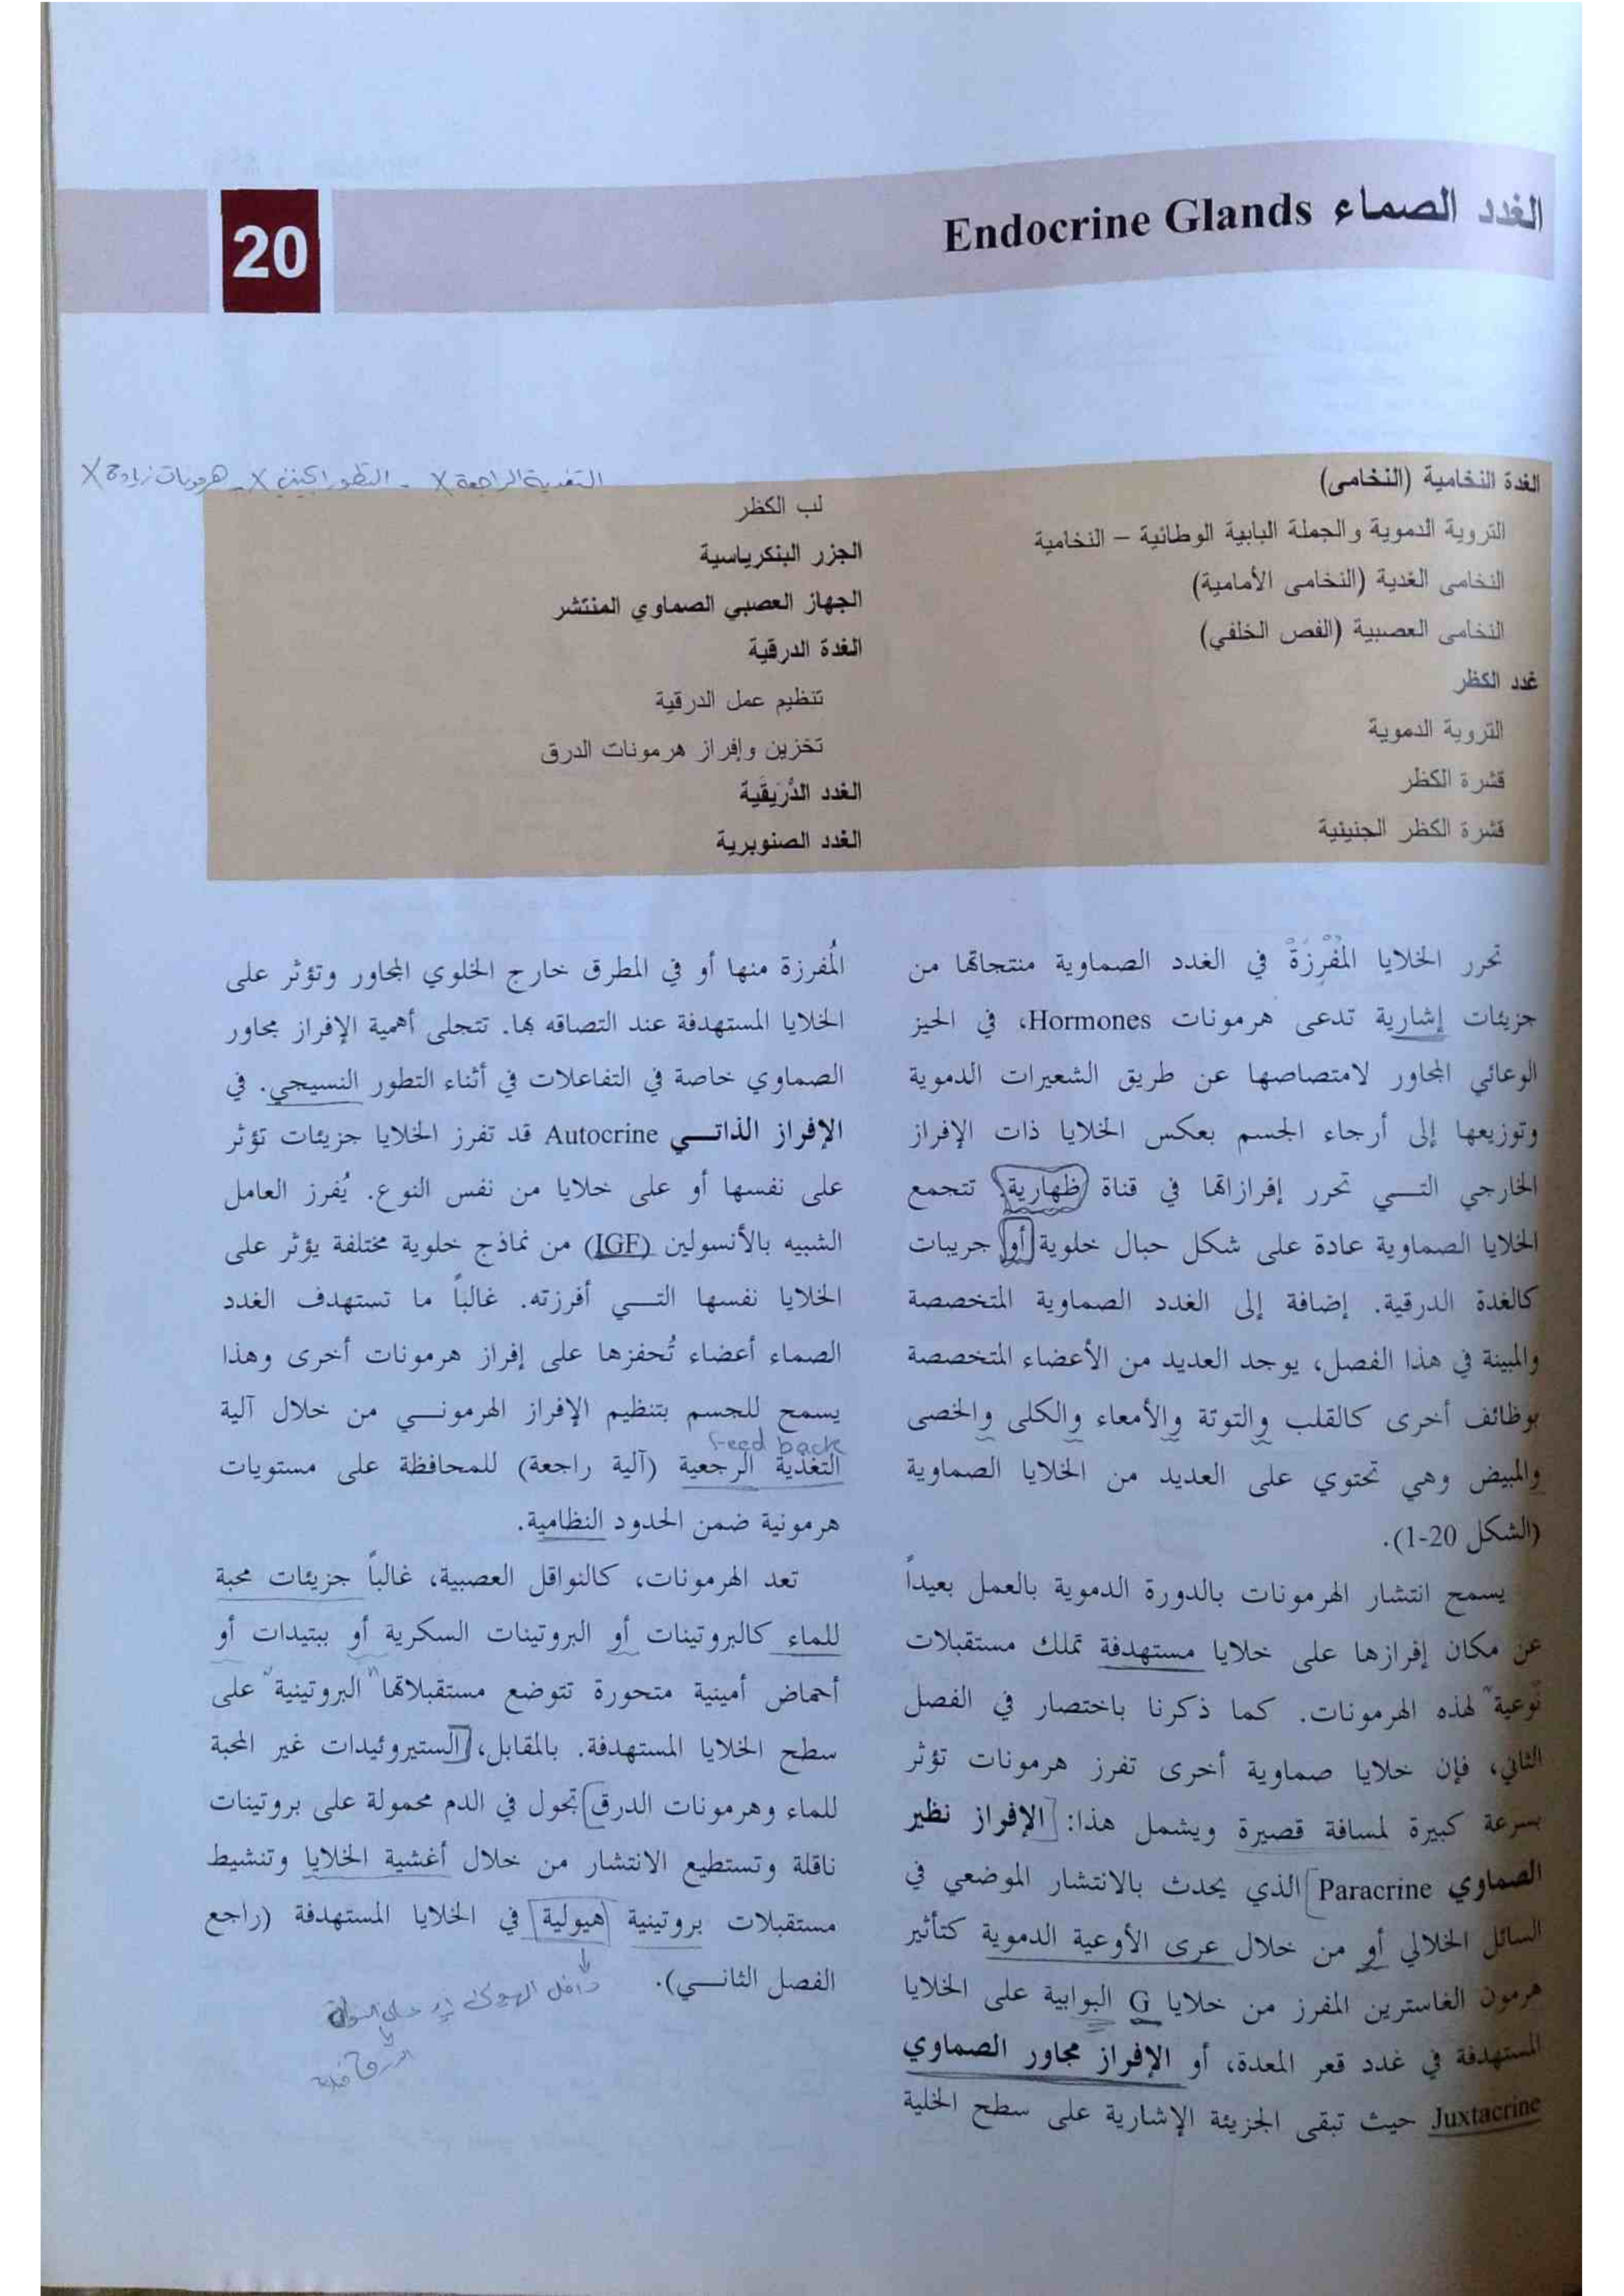 الغدد الصماء Endocrine Glands
20
التغذية الراجعة X - التطور الجنيني X - هرمونات زيادة X
الغدة النخامية (النخامى)
التروية الدموية والجملة البابية الوطائية – النخامية
النخامى الغدية (النخامى الأمامية)
النخامى العصبية (الفص الخلفي)
غدد الكظر
التروية الدموية
قشرة الكظر
قشرة الكظر الجنينية
لب الكظر
الجزر البنكرياسية
الجهاز العصبي الصماوي المنتشر
الغدة الدرقية
تنظيم عمل الدرقية
تخزين وإفراز هرمونات الدرق
الغدد الدُّرَيقَية
الغدد الصنوبرية
تحرر الخلايا المُفْرِزَةْ في الغدد الصماوية منتجاتها من
جزيئات إشارية تدعى هرمونات Hormones، في الحيز
الوعائي المجاور لامتصاصها عن طريق الشعيرات الدموية
وتوزيعها إلى أرجاء الجسم بعكس الخلايا ذات الإفراز
الخارجي التـــي تحرر إفرازاتها في قناة ظهارية. تتجمع
الخلايا الصماوية عادة على شكل حبال خلوية أو جريبات
كالغدة الدرقية. إضافة إلى الغدد الصماوية المتخصصة
والمبينة في هذا الفصل، يوجد العديد من الأعضاء المتخصصة
بوظائف أخرى كالقلب والتوتة والأمعاء والكلى والخصى
والمبيض وهي تحتوي على العديد من الخلايا الصماوية
(الشكل 20-1).
يسمح انتشار الهرمونات بالدورة الدموية بالعمل بعيداً
عن مكان إفرازها على خلايا مستهدفة تملك مستقبلات
نوعية لهذه الهرمونات. كما ذكرنا باختصار في الفصل
الثاني، فإن خلايا صماوية أخرى تفرز هرمونات تؤثر
بسرعة كبيرة لمسافة قصيرة ويشمل هذا: الإفراز نظير
الصماوي Paracrine الذي يحدث بالانتشار الموضعي في
السائل الخلالي أو من خلال عرى الأوعية الدموية كتأثير
هرمون الغاسترين المفرز من خلايا G البوابية على الخلايا
المستهدفة في غدد قعر المعدة، أو الإفراز مجاور الصماوي
Juxtacrine حيث تبقى الجزيئة الإشارية على سطح الخلية
المُفرزة منها أو في المطرق خارج الخلوي المجاور وتؤثر على
الخلايا المستهدفة عند التصاقه بها. تتجلى أهمية الإفراز مجاور
الصماوي خاصة في التفاعلات في أثناء التطور النسيجي. في
الإفراز الذاتـــي Autocrine قد تفرز الخلايا جزيئات تؤثر
على نفسها أو على خلايا من نفس النوع. يُفرز العامل
الشبيه بالأنسولين (IGF) من نماذج خلوية مختلفة يؤثر على
الخلايا نفسها التـــي أفرزته. غالباً ما تستهدف الغدد
الصماء أعضاء تُحفزها على إفراز هرمونات أخرى وهذا
يسمح للجسم بتنظيم الإفراز الهرمونـــي من خلال آلية
feed back
التغذية الرجعية (آلية راجعة) للمحافظة على مستويات
هرمونية ضمن الحدود النظامية.
تعد الهرمونات، كالنواقل العصبية، غالباً جزيئات محبة
للماء كالبروتينات أو البروتينات السكرية أو ببتيدات أو
أحماض أمينية متحورة تتوضع مستقبلاتها "البروتينية" على
سطح الخلايا المستهدفة. بالمقابل، الستيروئيدات غير المحبة
للماء وهرمونات الدرق تجول في الدم محمولة على بروتينات
ناقلة وتستطيع الانتشار من خلال أغشية الخلايا وتنشيط
مستقبلات بروتينية هيولية في الخلايا المستهدفة (راجع
الفصل الثانـــي).
داخل الهيولى